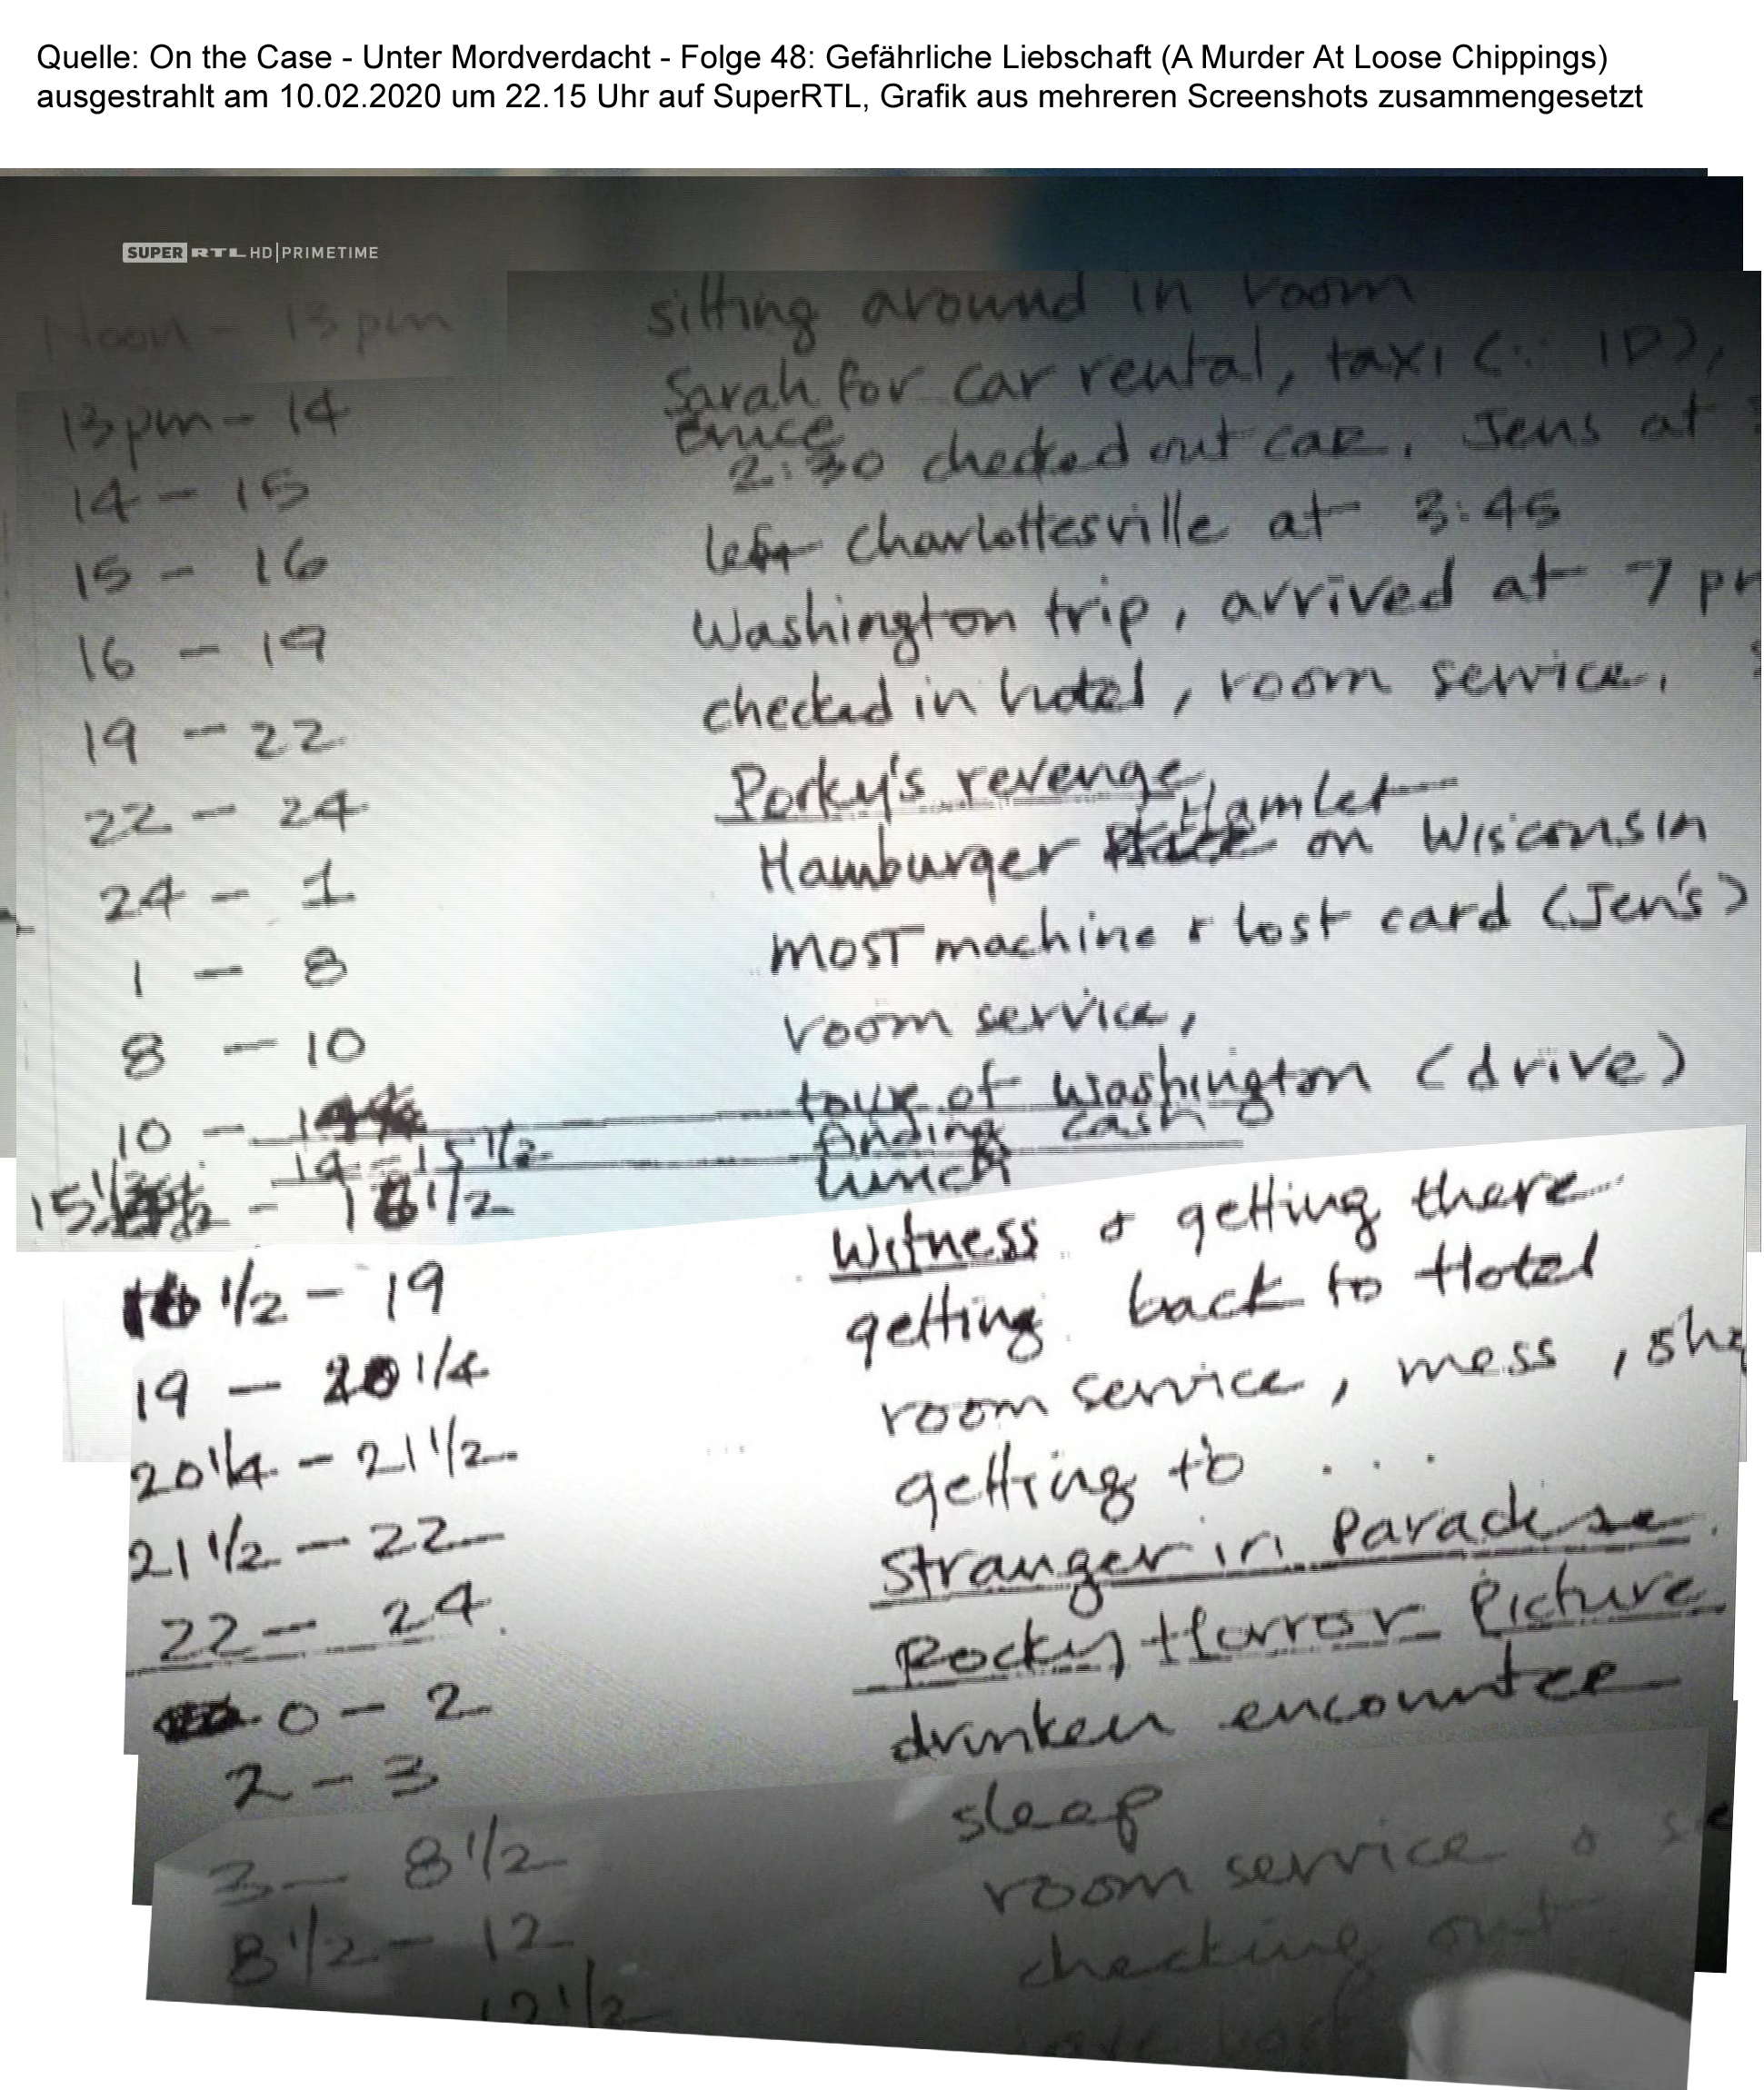 Quelle: On the Case - Unter Mordverdacht - Folge 48: Gefährliche Liebschaft (A Murder At Loose Chippings)
ausgestrahlt am 10.02.2020 um 22.15 Uhr auf SuperRTL, Grafik aus mehreren Screenshots zusammengesetzt
SUPER RTL HD|PRIMETIME
Noon - 13 pm sitting around in room
13pm - 14 Sarah for car rental, taxi ID),
14 - 15 2:30 checked out car. Jens at
15 - 16 left Charlottesville at 3:45
16 - 19 Washington trip, arrived at 7
19 - 22 checked in hotel, room service.
22 - 24 Porky's revenge
24 - 1 Hamburger Hamlet on Wisconsin
1 - 8 MOST machine & lost card (Jen's)
8 - 10 room service,
10 - tour of Washington (drive)
14 - 15 1/2 finding cash
15 1/2 - 16 1/2 lunch
16 1/2 - 19 Witness & getting there
19 - 20 1/4 getting back to Hotel
20 1/4 - 21 1/2 room service, mess,
21 1/2 - 22 getting to ....
22 - 24. Stranger in Paradise.
0 - 2 Rocky Horror Picture
2 - 3 drunken encounter
3 - 8 1/2 sleep
8 1/2 - 12 room service &
12 1/2 checking out